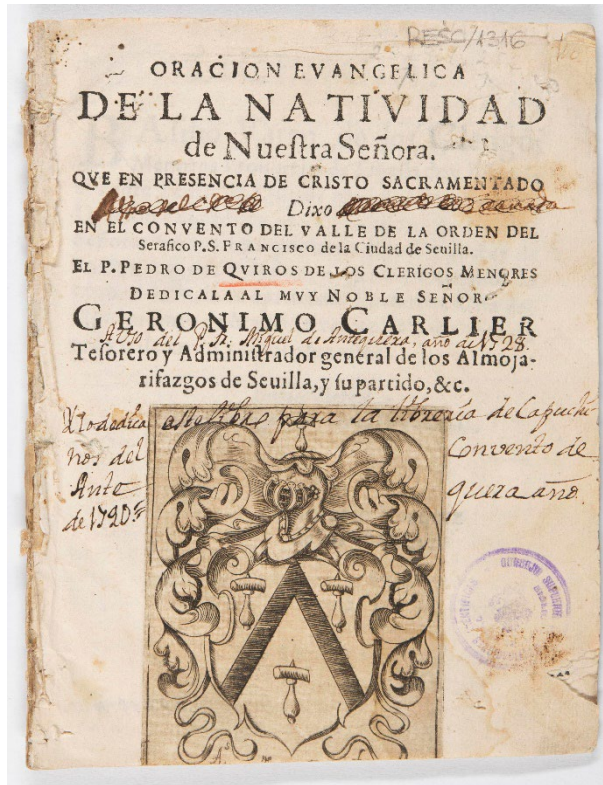 RESC/1316
ORACION EVANGELICA
DE LA NATIVIDAD
de Nueſtra Señora.
QVE EN PRESENCIA DE CRISTO SACRAMENTADO
Dixo
EN EL CONVENTO DEL VALLE DE LA ORDEN DEL
Serafico P.S. FRANCISCO de la Ciudad de Seuilla.
EL P. PEDRO DE QVIROS DE LOS CLERIGOS MENORES
DEDICALA AL MVY NOBLE SEÑOR
GERONIMO CARLIER
del P. Fr. Miguel de Antequera, año de 1728.
Teſorero y Adminiſtrador general de los Almoja-
rifazgos de Seuilla, y ſu partido, &c.
este libro para la libreria de Capuchi
nos del Convento de
Ante quera año